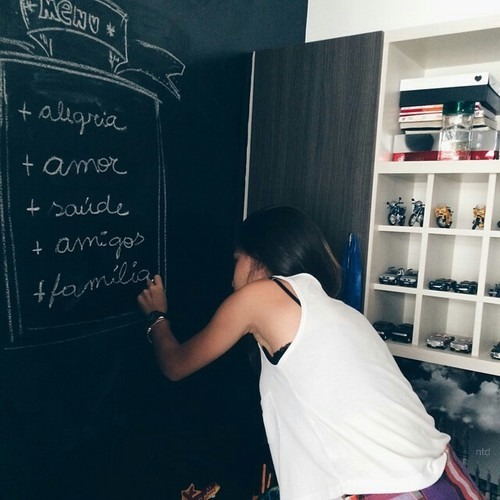 MENU
+ alegria
+ amor
+ saúde
+ amigos
+ família
ntd